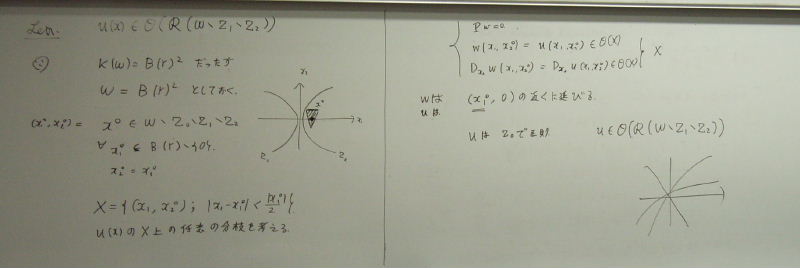 Lem. u(x) ∈ O(R(W∖Z₁∖Z₂))
∵ K(W) = B(r)² だったが
W = B(r)² としておく.
x⁰ ∈ W∖Z₀∖Z₁∖Z₂
∀ x₁⁰ ∈ B(r)∖{0}.
x₂⁰ = x₁⁰
X = {(x₁, x₂⁰) ; |x₁-x₁⁰| < |x₁⁰|/2}
u(x) の X 上の任意の分枝を考える.
x₂
x⁰
x₁
Z₁
Z₂
Pw=0.
w(x₁, x₂⁰) = u(x₁, x₂⁰) ∈ O(X)
D_{x₂} w(x₁, x₂⁰) = D_{x₂} u(x₁, x₂⁰) ∈ O(X)
X
wは (x₁⁰, 0) の近くに延びる.
uは
uは Z₀で正則 u ∈ O(R(W∖Z₁∖Z₂))